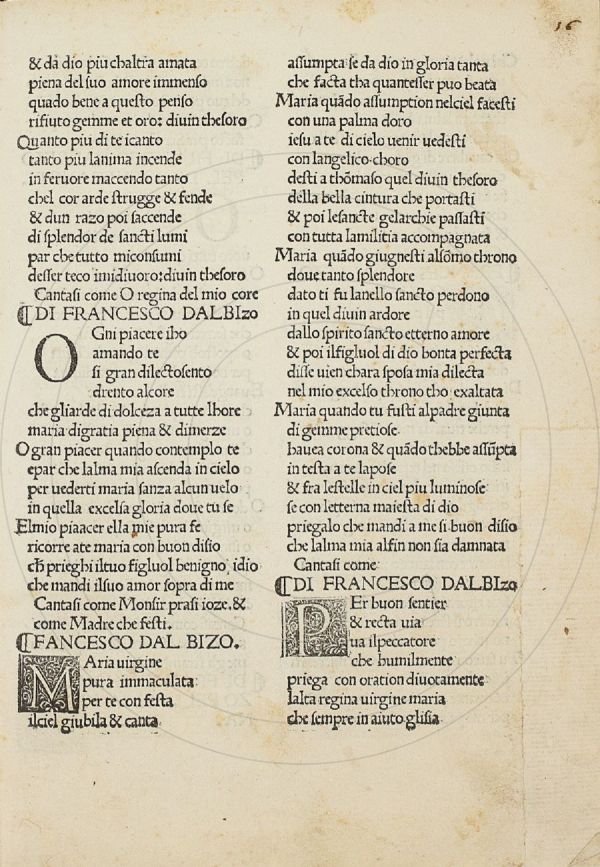 16
& da dio piu chaltra amata
piena del suo amore immenso
quādo bene a questo penso
rifiuto gemme et oro: diuin thesoro
Quanto piu di te icanto
tanto piu lanima incende
in feruore maccendo tanto
chel cor arde strugge & fende
& dun razo poi saccende
di splendor de sancti lumi
par che tutto miconsumi
desser teco imidiuoro: diuin thesoro
Cantasi come O regina del mio core
⁋DI FRANCESCO DALBIzo
OGni piacere iho
amando te
si gran dilectosento
drento alcore
che gliarde di dolceza a tutte lhore
maria digratia piena & dimerze
O gran piacer quando contemplo te
epar che lalma mia ascenda in cielo
per uederti maria sanza alcun uelo
in quella excelsa gloria doue tu se
Elmio piaacer ella mie pura fe
ricorre ate maria con buon disio
ch̄ prieghi iltuo figluol benigno idio
che mandi ilsuo amor sopra di me
Cantasi come Monsir prasi ioze. &
come Madre che festi.
⁋FANCESCO DAL BIZO.
MAria uirgine
pura immaculata
per te con festa
ilciel giubila & canta
assumpta se da dio in gloria tanta
che facta tha quantesser puo beata
Maria quādo assumption nelciel facesti
con una palma doro
iesu a te di cielo uenir uedesti
con langelico choro
desti a thōmaso quel diuin thesoro
della bella cintura che portasti
& poi lesancte gelarchie passasti
con tutta lamilitia accompagnata
Maria quādo giugnesti alsōmo throno
doue tanto splendore
dato ti fu lanello sancto perdono
in quel diuin ardore
dallo spirito sancto etterno amore
& poi ilfigluol di dio bonta perfecta
disse uien chara sposa mia dilecta
nel mio excelso throno tho exaltata
Maria quando tu fusti alpadre giunta
di gemme pretiose
hauea corona & quādo thebbe assūpta
in testa a te lapose
& fra lestelle in ciel piu luminose
se con letterna maiesta di dio
priegalo che mandi a me si buon disio
che lalma mia alfin non sia damnata
Cantasi come
⁋DI FRANCESCO DALBIzo
PEr buon sentier
& recta uia
ua ilpeccatore
che humilmente
priega con oration diuotamente
lalta regina uirgine maria
che sempre in aiuto glisia